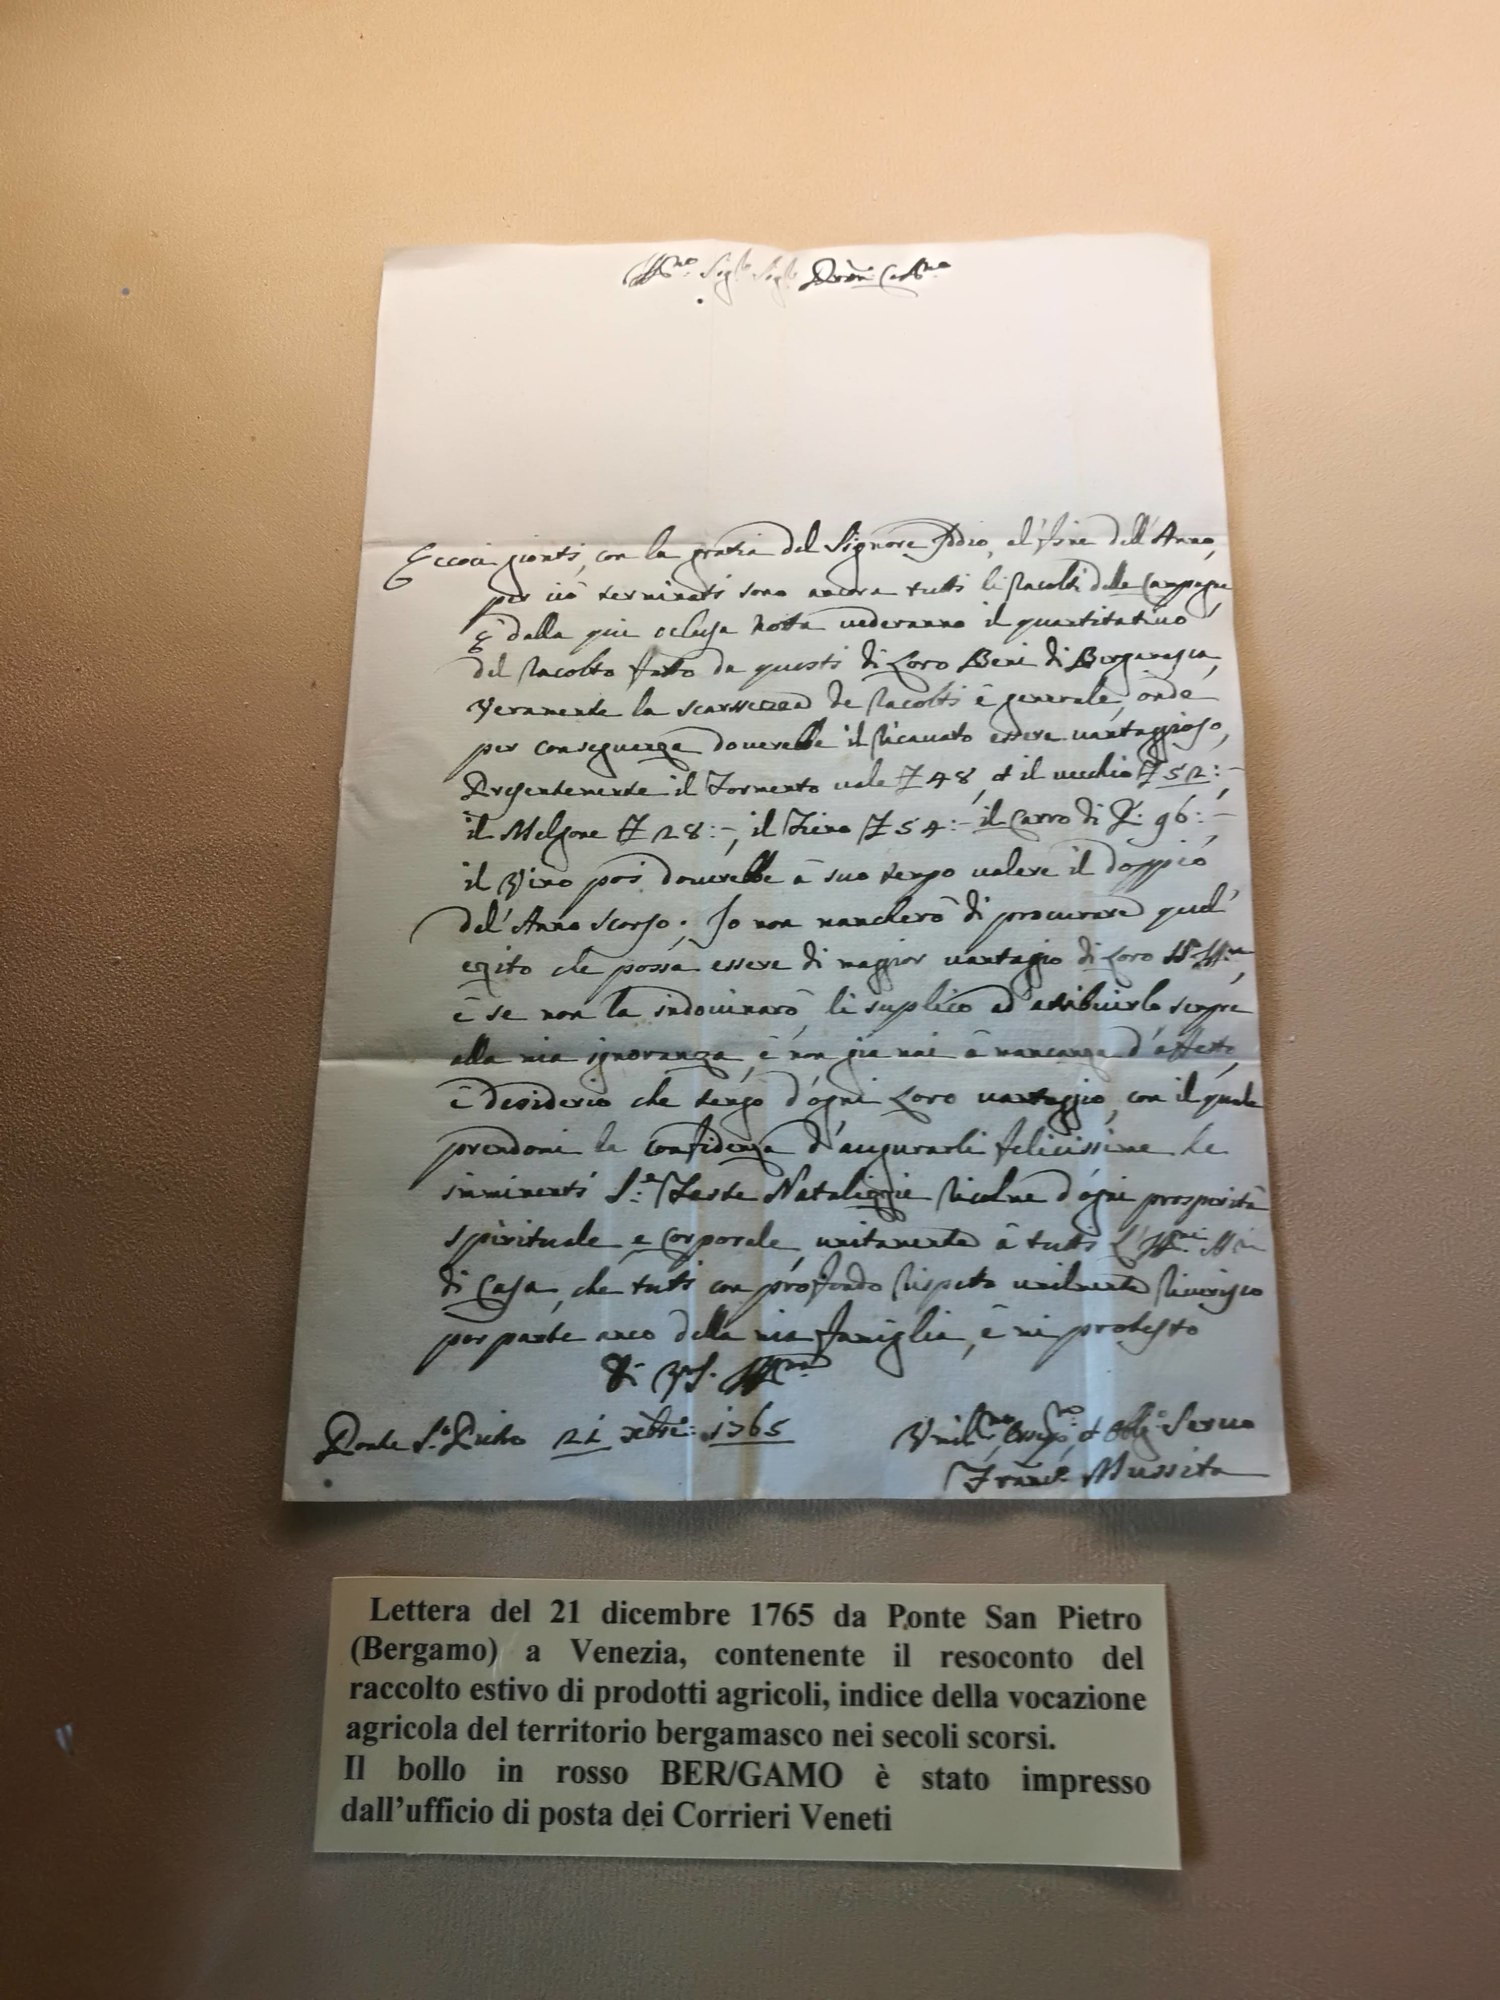 Eccoci gionti, con la gratia del Signore Iddio, al fine dell'Anno,
per ciò terminati sono ancora tutti li Racolti dalle Campagne
E dalla qui oclusa Notta vederanno il quantitativo
del Racolto fatto da questi di Loro Beni di Bergamasca,
Veramente la scarsezza de Racolti è generale, onde
per conseguenza doverebbe il Ricavato essere vantaggioso,
Presentemente il Formento vale 48, et il vecchio 52:-
il Melgone 28:-, il Fieno 54:- il Carro di P. 96:-,
il Vino poi doverebbe à suo tempo valere il doppio
del'Anno scorso; Io non mancherò di procurare quel'
egito che possa essere di magior vantagio di Loro
è se non la indovinarò, li suplico ad atribuirlo sempre
alla mia ignoranza, è non già mai à mancanza d'affetto,
è desiderio che tengo d'ogni Loro vantaggio, con il quale
prendomi la confidenza d'augurarli felicissime le
imminenti S.e Feste Natalizie Ricolme d'ogni prosperità
spirituale e corporale, unitamente à tutti
di Casa, che tuti con profondo Rispeto umilmente Riverisco
per parte anco della mia famiglia, è mi protesto
Di V.S. Ill.ma
Ponte S. Pietro 21 Xbre: 1765
Umil.mo et Obbl.o Servo
Franc.o Mussita
Lettera del 21 dicembre 1765 da Ponte San Pietro
(Bergamo) a Venezia, contenente il resoconto del
raccolto estivo di prodotti agricoli, indice della vocazione
agricola del territorio bergamasco nei secoli scorsi.
Il bollo in rosso BER/GAMO è stato impresso
dall'ufficio di posta dei Corrieri Veneti